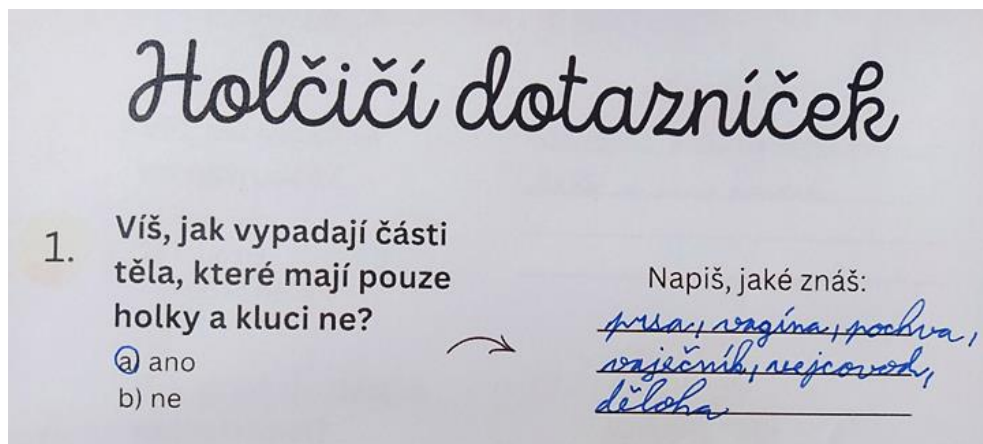 Holčičí dotazníček
1.
Víš, jak vypadají části
těla, které mají pouze
holky a kluci ne?
a) ano
b) ne
Napiš, jaké znáš:
prsa, vagína, pochva,
vaječník, vejcovod,
děloha